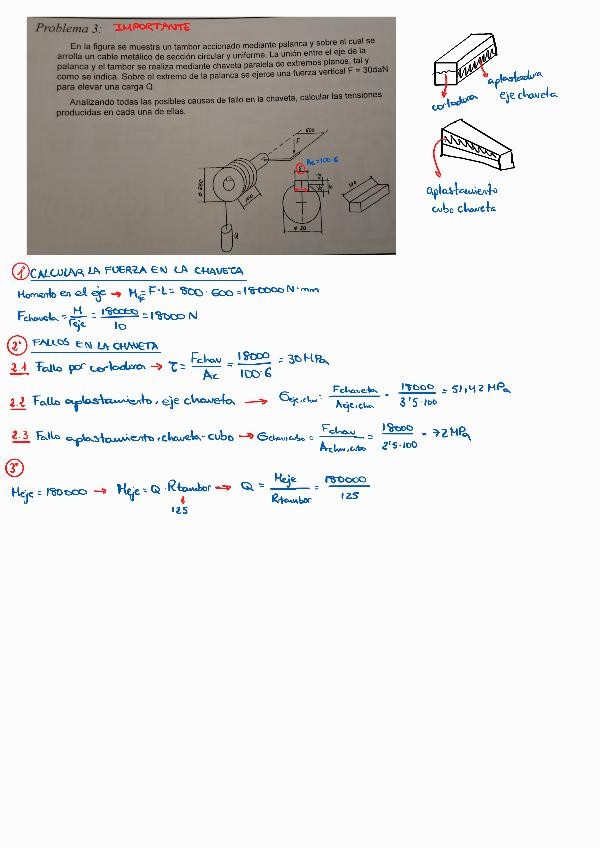 Problema 3: IMPORTANTE
En la figura se muestra un tambor accionado mediante palanca y sobre el cual se
arrolla un cable metálico de sección circular y uniforme. La unión entre el eje de la
palanca y el tambor se realiza mediante chaveta paralela de extremos planos, tal y
como se indica. Sobre el extremo de la palanca se ejerce una fuerza vertical F = 30daN
para elevar una carga Q.
Analizando todas las posibles causas de fallo en la chaveta, calcular las tensiones
producidas en cada una de ellas.
cortadura
aplastadura
eje chaveta
aplastamiento
cubo chaveta
600
F
Ac=100·6
100
Q
Φ 20
① CALCULAR LA FUERZA EN LA CHAVETA
Momento en el eje → Meje = F·L = 800·600 = 180000 N·mm
Fchaveta = M/reje = 180000/10 = 18000 N
② FALLOS EN LA CHAVETA
2.1 Fallo por cortadura → τ = Fchav/Ac = 18000/100·6 = 30 MPa
2.2 Fallo aplastamiento, eje chaveta → σeje,cha = Fchaveta/Aeje,cha = 18000/3'5·100 = 51,42 MPa
2.3 Fallo aplastamiento, chaveta-cubo → σchav,cubo = Fchav/Achav,cubo = 18000/2'5·100 = 72 MPa
③
Meje = 180000 → Meje = Q·Rtambor → Q = Meje/Rtambor = 180000/125
125